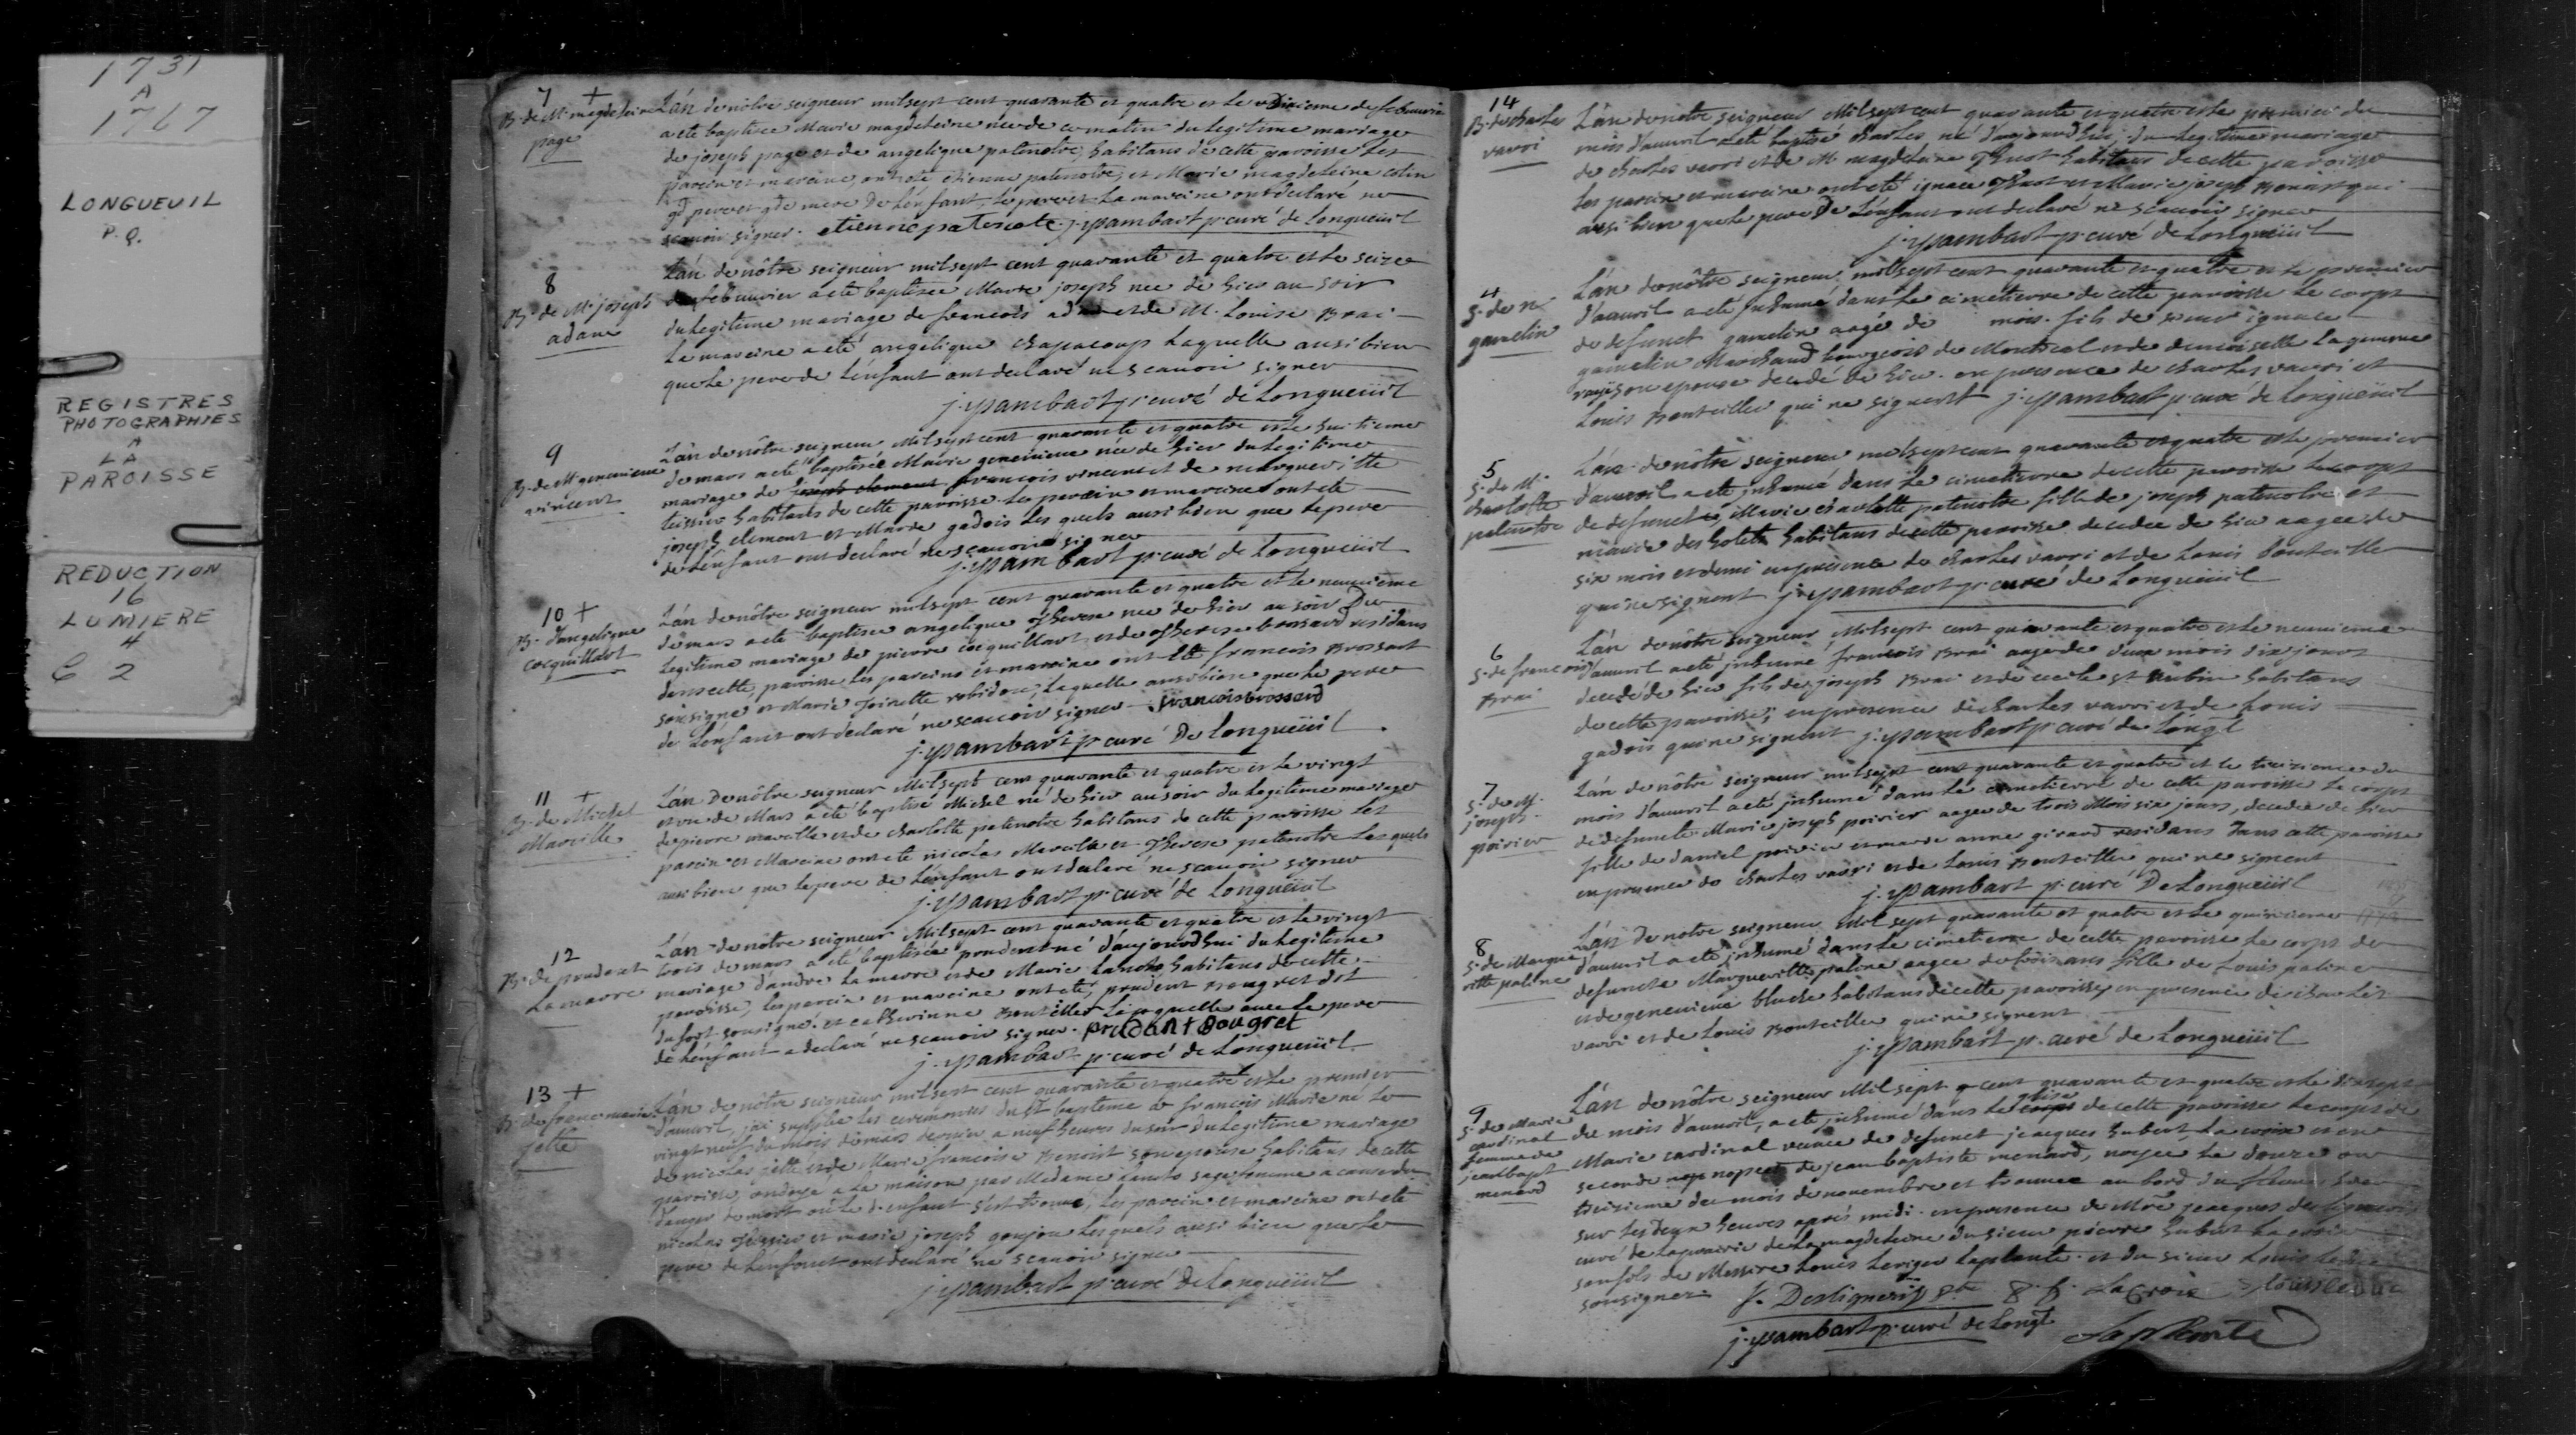 1731
A
1767
LONGUEUIL
P.Q.
REGISTRES
PHOTOGRAPHIES
A
LA
PAROISSE
REDUCTION
16
LUMIERE
4
C 2
7 +
B. de M. magdeleine
page
L'an de nôtre seigneur mil sept cent quarante et quatre et le dixieme de febvrier
a ete baptisee Marie magdeleine née de ce matin du legitime mariage
de joseph page et de angelique patenotre, habitans de cette paroisse les
parein et mareine ont ete etienne patenotre, et Marie magdeleine colin
gd pere et gde mere de l'enfant, le pere et la mareine ont declaré ne
scavoir signer. etienne patenote j. ysambart p. curé de longueüil
8
B. de M. joseph
adam
L'an de nôtre seigneur mil sept cent quarante et quatre et le seize
de febvrier a eté baptisee Marie joseph nee de hier au soir
du legitime mariage de francois et de M. Louise Brai
la mareine a eté angelique chapacoup laquelle ausi bien
que le pere de l'enfant ont declaré ne scavoir signer
j. ysambart p. curé de Longueüil
9
B. de M. genevieve
vincent
L'an de nôtre seigneur Mil sept cent quarante et quatre et le huitieme
de mars a eté baptisée Marie genevieve née de hier du legitime
mariage de joseph clement francois vincent et de margueritte
teissier habitants de cette paroisse. les parein et mareine ont ete
joseph clement et Marie gadois les quels ausi bien que le pere
de l'enfant ont declaré ne scavoir signer
j. ysambart p. curé de Longueüil
10 +
B. d'angelique
cocquillart
L'an de nôtre seigneur mil sept cent quarante et quatre et le neuvieme
de mars a eté baptisee angelique therese nee de hier au soir du
legitime mariage de pierre cocquillart et de therese brossard residans
dans cette paroisse les pareins et mareine ont ete francois Brossart
soisigné et Marie robidou, laquelle ausi bien que le pere
de l'enfant ont declaré ne scavoir signer francois brossard
j. ysambart p curé de longueüil
11 +
B. de Michel
Marville
L'an de nôtre seigneur Mil sept cent quarante et quatre et le vingt
et un de Mars a eté baptisé Michel né de hier au soir du legitime mariage
de pierre marville et de charlotte patenotre habitans de cette paroisse les
parein et Mareine ont ete nicolas et therese patenotre les quels
ausi bien que le pere de l'enfant ont declaré ne scavoir signer
j. ysambart p. curé de Longueüil
12
B. de prudent
Lamarre
L'an de notre seigneur Mil sept cent quarante et quatre et le vingt
trois de mars a eté baptisée prudent né d'aujourdhui du legitime
mariage d'andre La marre et de Marie habitans de cette
paroisse, les parein et mareine ont eté, prudent Bougret dit
du fort sousigné. et catherinne Bouteiller laquelle avec le pere
de l'enfant a declaré ne scavoir signer. prudant Bougret
j. ysambart p. curé de Longueüil
13 +
B. de franc. marie
jetté
L'an de nôtre seigneur mil sept cent quarante et quatre et le premier
d'avvril, jai supplee les ceremonies du St bapteme a francois Marie né le
vingt neuf du mois de mars dernier a neuf heures du soir du legitime mariage
de nicolas jetté et de Marie francoise Benoist son epouse habitans de cette
paroisse, ondoye a la maison par Madame sage femme a cause du
danger de mort ou le d. enfant s'est trouvé, les parein et mareine ont eté
nicolas et marie joseph goujou les quels ausi bien que le
pere de l'enfant ont declaré ne scavoir signer
j. ysambart p. curé de Longueüil
14
B. de charles
varri
L'an de notre seigneur Mil sept cent quarante et quatre et le premier du
mois d'avvril a eté baptisé charles né d'aujourdhui du legitime mariage
de charles varri et de M. magdeleine habitans de cette paroisse
les parein et mareine ont eté ignace et Marie joseph qui
ausi bien que le pere de l'enfant ont declaré ne scavoir signer
j. ysambart p. curé de Longueüil
4
S. de n.
gamelin
L'an de nôtre seigneur, mil sept cent quarante et quatre et le premier
d'avvril a eté Inhumé dans le cimetierre de cette paroisse le corps
de defunct gamelin aagé de mois. fils de sieur ignace
gamelin Marchand bourgeois de Montreal et de demoiselle
son epouse decedé de hier. en presence de charles varri et
Louis Bouteiller qui ne signent j. ysambart p. curé de Longueüil
5
S. de M.
charlotte
patenotre
L'an de nôtre seigneur mil sept cent quarante et quatre et le premier
d'avvril a eté jnhumé dans le cimetierre de cette paroisse le corps
de defuncte, Marie charlotte patenotre fille de joseph patenotre et
marie habitans de cette paroisse decedée de hier aagee de
six mois et demi en presence de charles varri et de Louis bouteille
qui ne signent j. ysambart p. curé de Longueüil
6
S. de francois
Brai
L'an de nôtre seigneur, Mil sept cent quarante et quatre et le neuvieme
d'avvril a eté jnhumé francois Brai aagé de deux mois dix jours
decede de hier fils de joseph Brai et de cecile St Aubin habitans
de cette paroisse, en presence de charles varri et de Louis
gadois qui ne signent j. ysambart p. curé de Longl
7
S. de M.
joseph
poirier
L'an de nôtre seigneur mil sept cent quarante et quatre et le treizieme du
mois d'avvril a eté jnhumé dans le cimetierre de cette paroisse le corps
de defuncte Marie joseph poirier aagee de trois Mois six jours, decedee de hier
fille de daniel poirier et marie anne girard residans dans cette paroisse
en presence de charles varri et de Louis Bouteiller qui ne signent
j. ysambart p. curé De Longueüil
8
S. de Margue-
ritte patine
L'an de notre seigneur Mil sept quarante et quatre et le quinzieme
d'avvril a eté jnhumé dans le cimetierre de cette paroisse le corps de
defuncte Margueritte patine aagee de trois ans fille de Louis patine
et de genevieve habitans de cette paroisse, en presence de charles
varri et de Louis Bouteiller qui ne signent
j. ysambart p. curé de Longueüil
9
S. de Marie
cardinal
femme de
jean bapt
menard
L'an de nôtre seigneur Mil sept cent quarante et quatre et le dixsept
du mois d'avvril, a ete jnhumé dans l'eglise de cette paroisse le corps de
Marie cardinal veuve de defunct jeacques hubert La croix et en
seconde nopces de jean baptiste menard, noyee le douze ou
treizieme du mois de novembre et trouvee au bord du fleuve hier
sur les deux heures aprés midi. en presence de Mre jeacques desligneris
curé de la prairie de la magdeleine du sieur pierre hubert La croix
son fils de Messire Louis Leriger Laplante. et du sieur Louis
sousignez. J. Desligneris ptre P. h. LaCroix Louis Leduc
j. ysambart p. curé de Longl Laplante